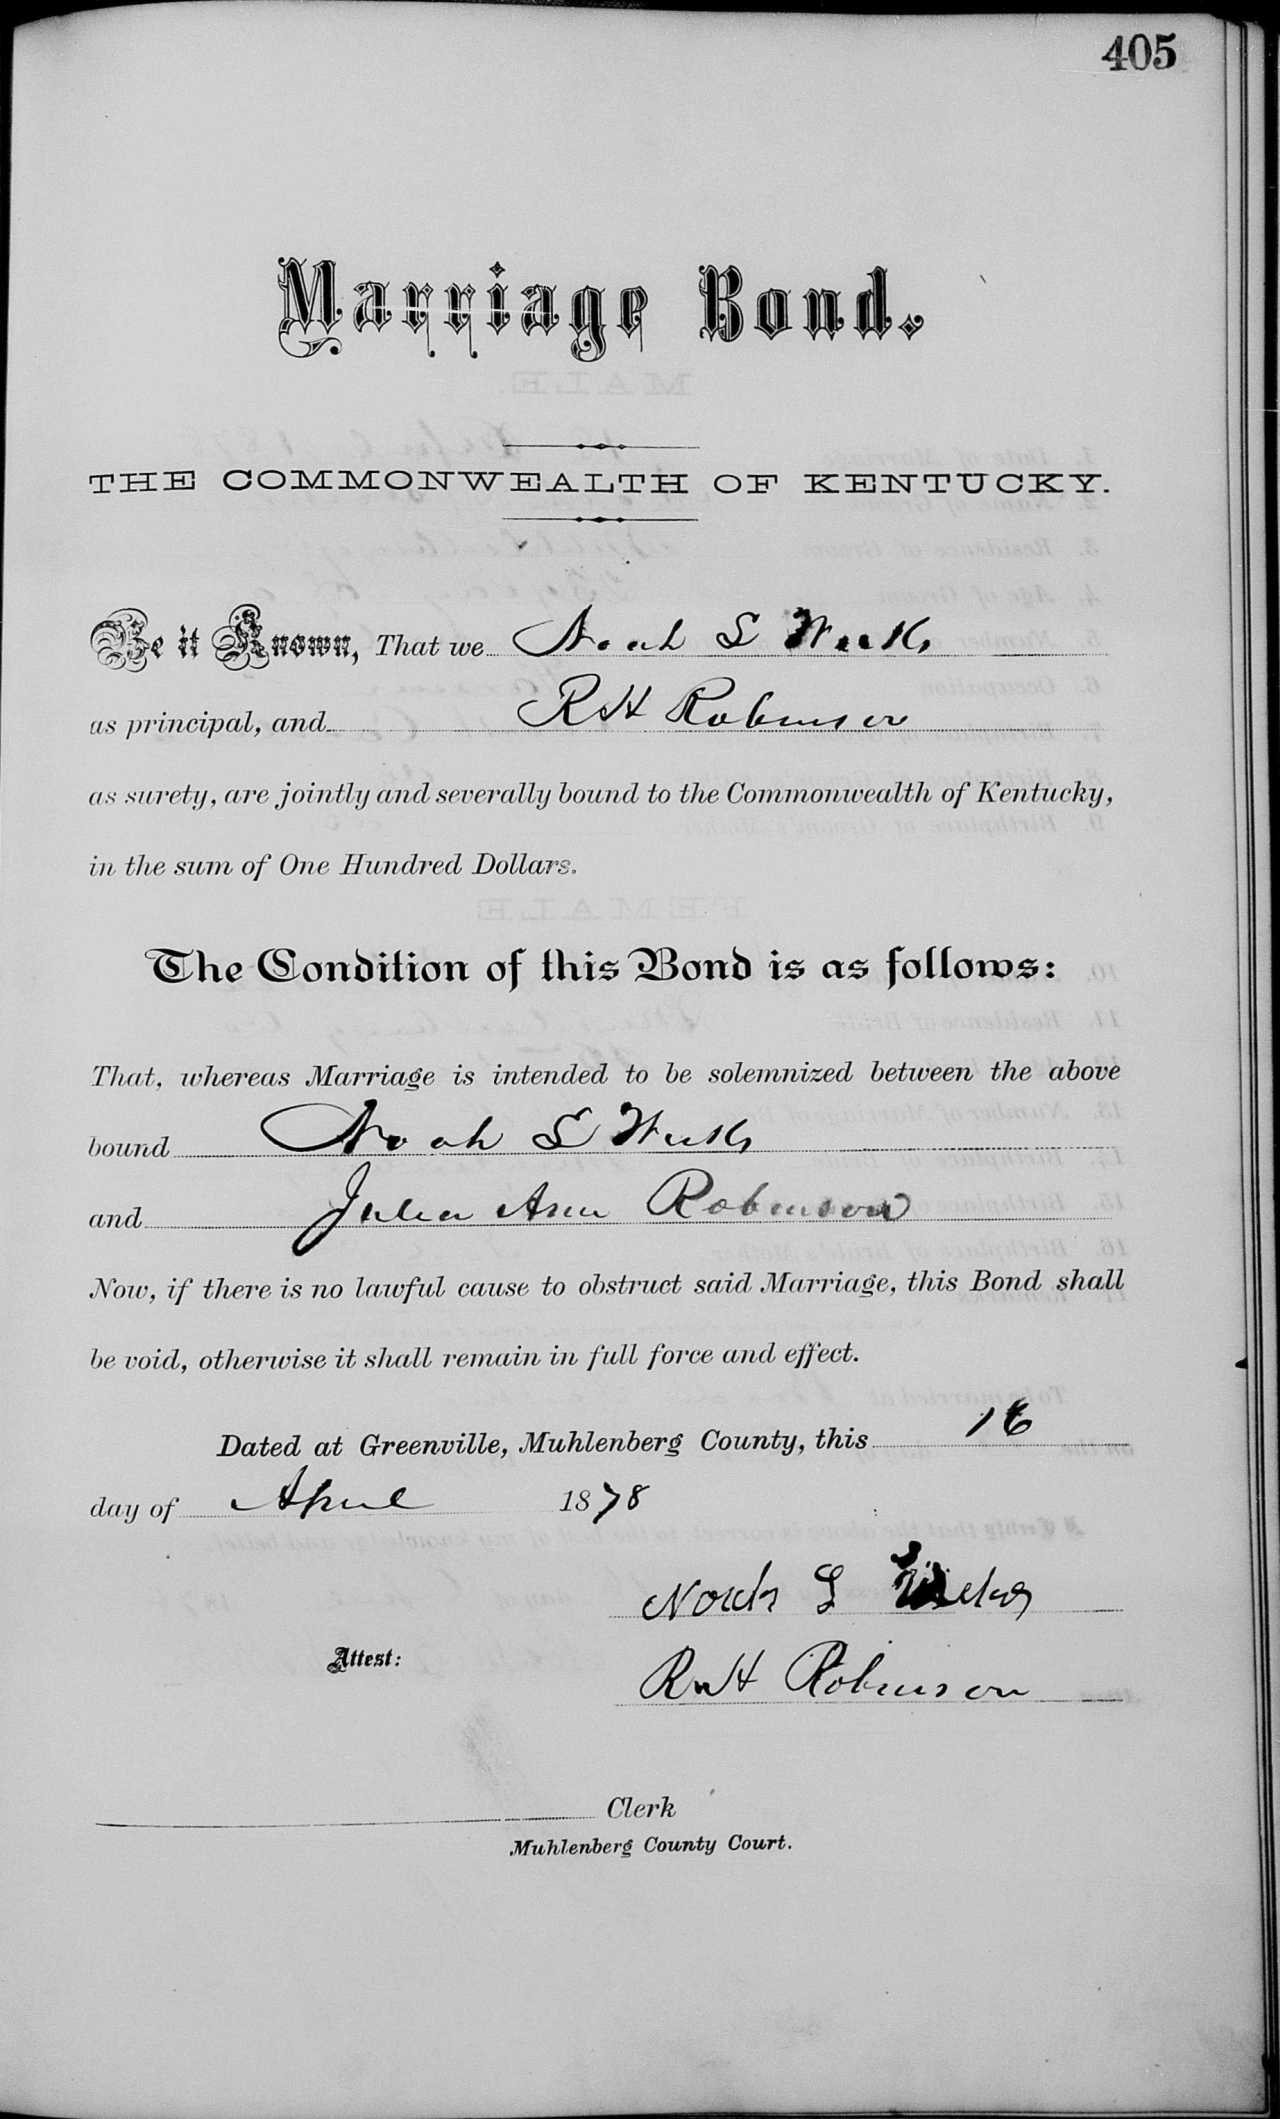 405
Marriage Bond.
THE COMMONWEALTH OF KENTUCKY.
Be it Known, That we Noah S Weeks
as principal, and R H Robinson
as surety, are jointly and severally bound to the Commonwealth of Kentucky,
in the sum of One Hundred Dollars.
The Condition of this Bond is as follows:
That, whereas Marriage is intended to be solemnized between the above
bound Noah S Weeks
and Julia Ann Robinson
Now, if there is no lawful cause to obstruct said Marriage, this Bond shall
be void, otherwise it shall remain in full force and effect.
Dated at Greenville, Muhlenberg County, this 16
day of April 1878
Noah S Weeks
Attest:
R H Robinson
Clerk
Muhlenberg County Court.